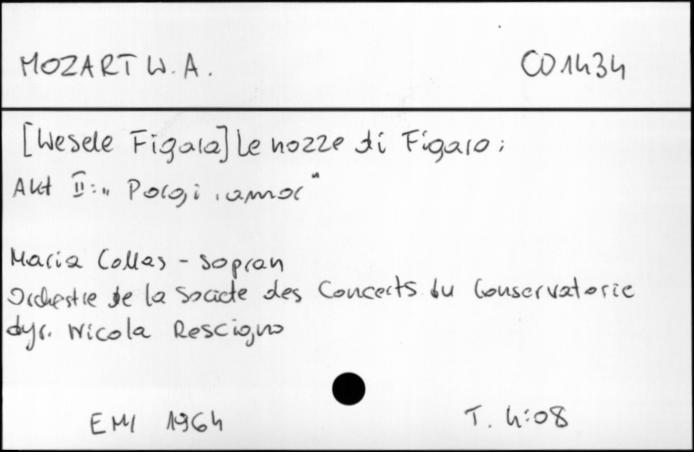 MOZART W. A. CD 1434
[Wesele Figara] Le nozze di Figaro;
Akt II: „Porgi, amor"
Maria Callas - sopran
Orchestre de la Societe des Concerts du Conservatorie
dyr. Nicola Rescigno
EMI 1964 T. 4:08